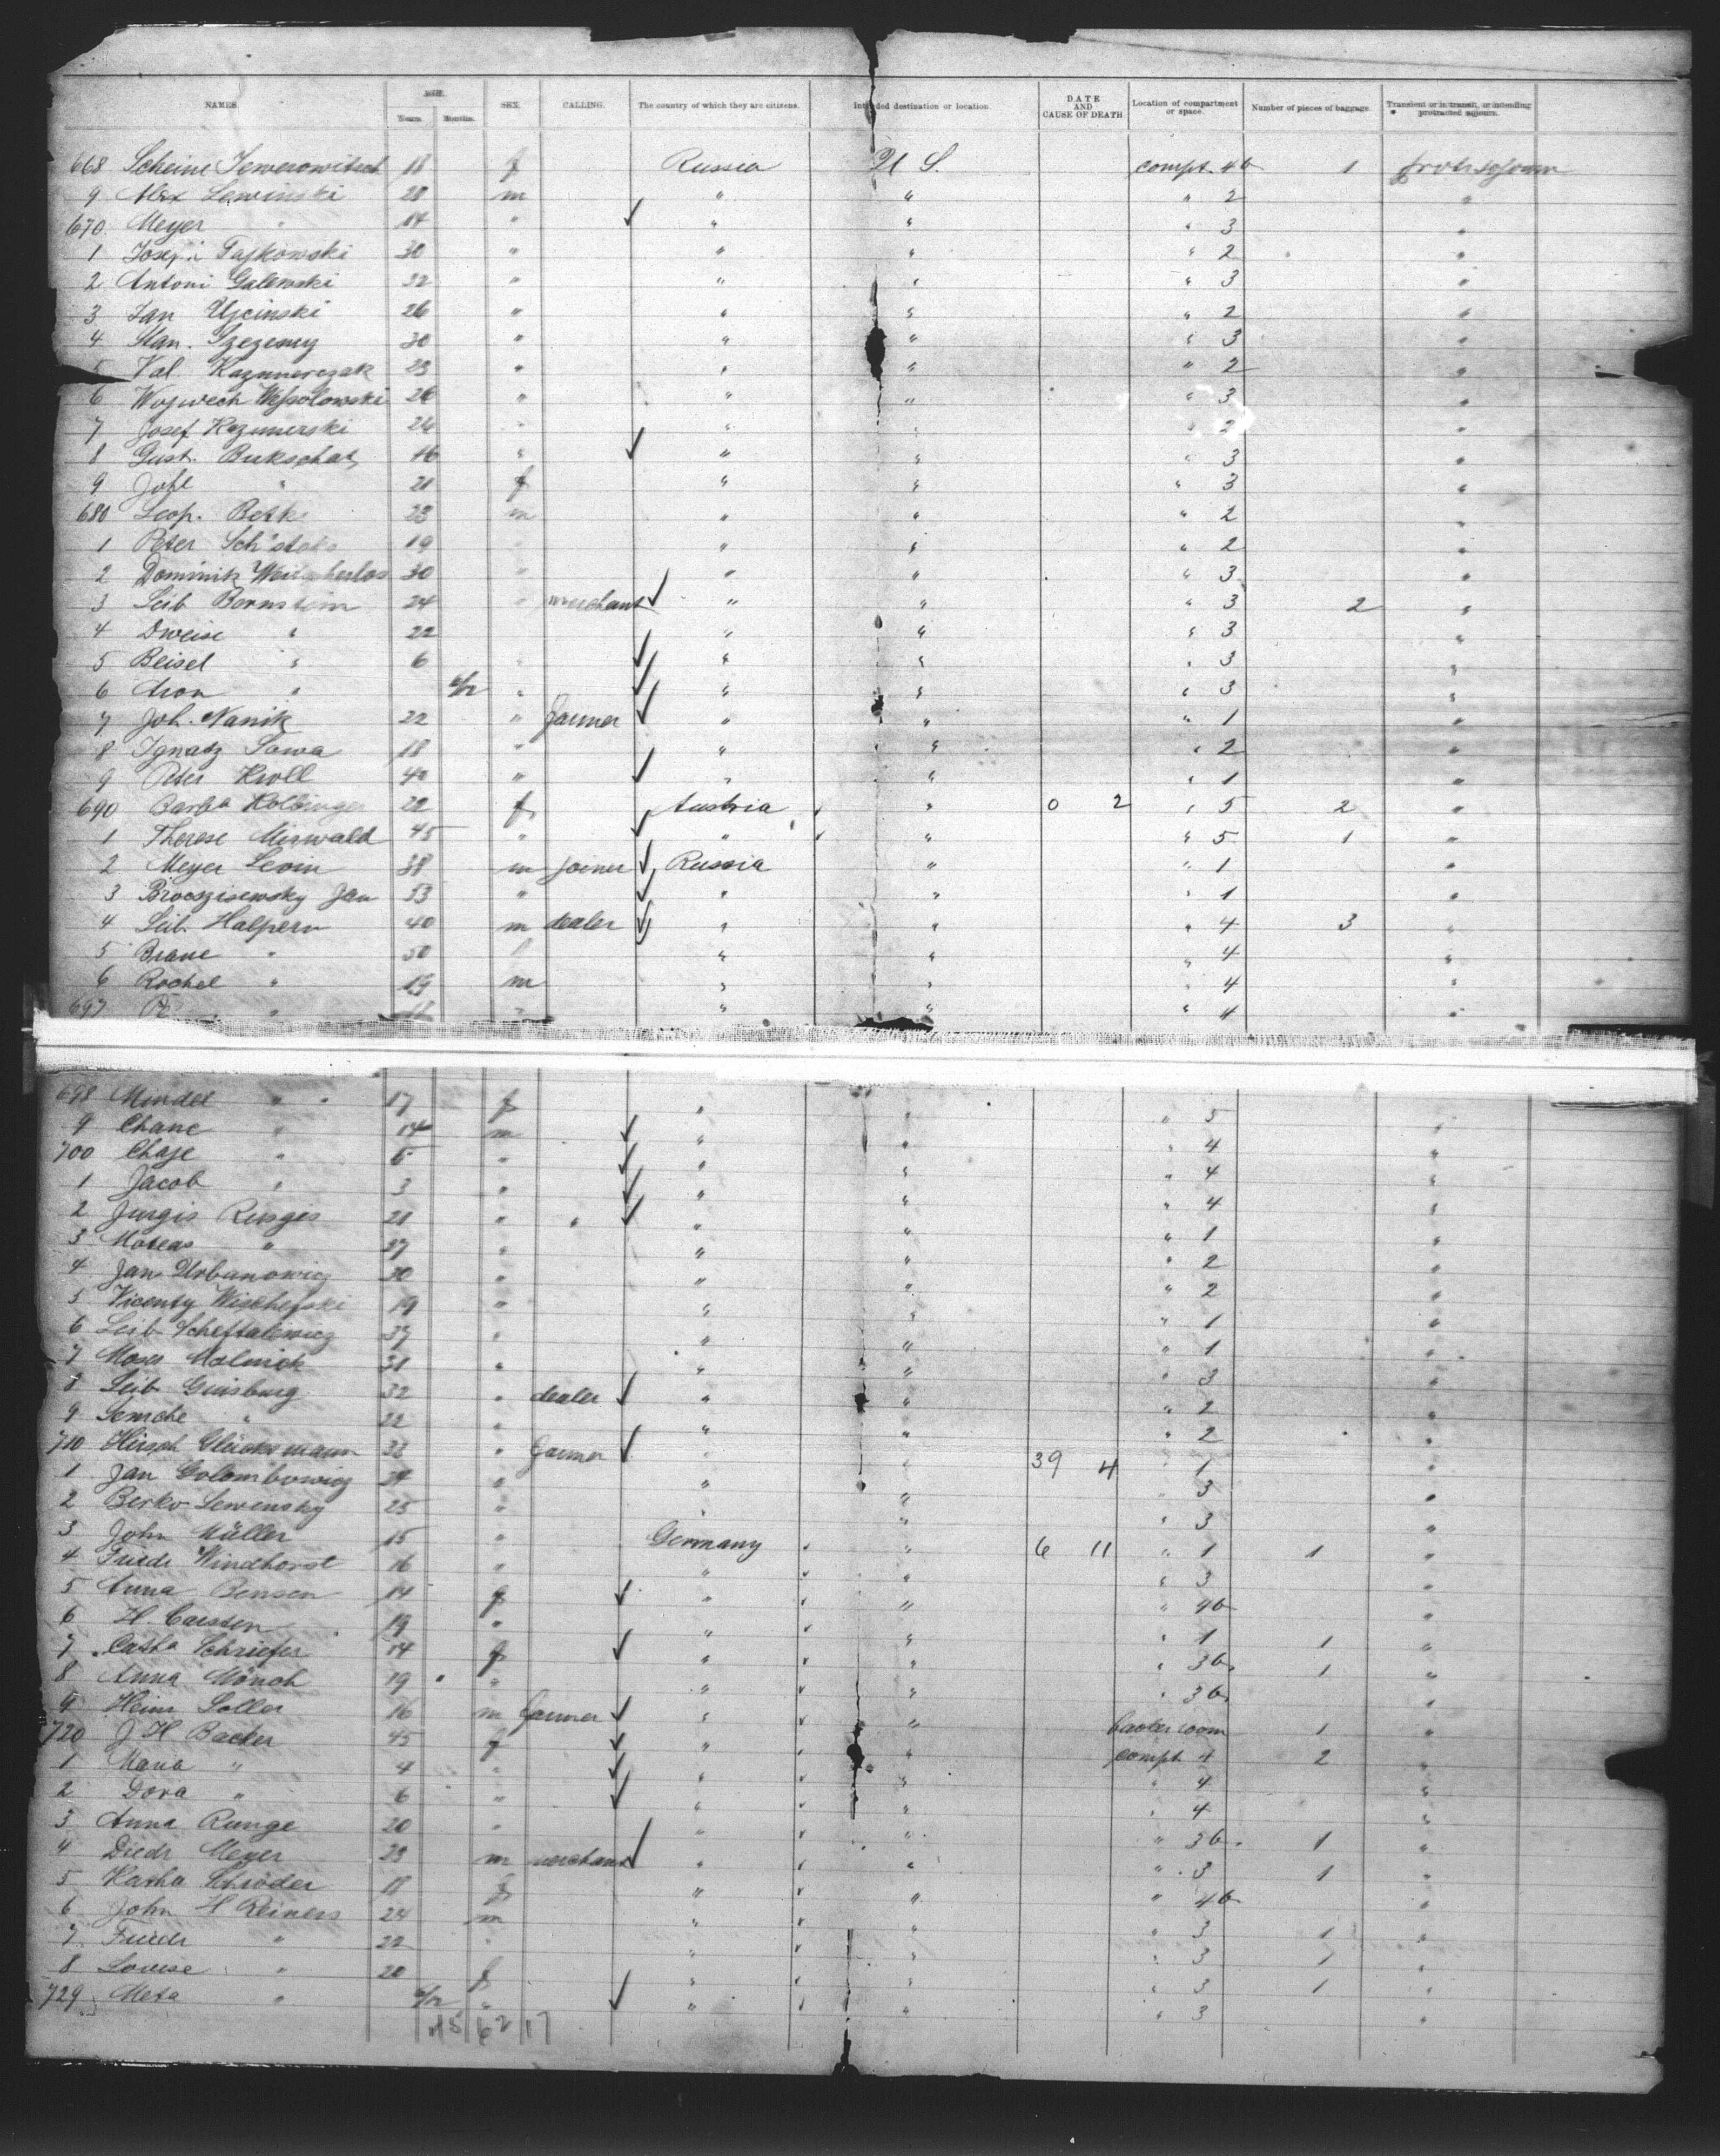 NAMES. AGE. Years. Months. SEX. CALLING. The country of which they are citizens. Intended destination or location. DATE AND CAUSE OF DEATH Location of compartment or space. Number of pieces of baggage. Transient or in transit, or intending protracted sojourn.
668 Scheine 18 f Russia U S. compt. 4b 1
9 Alex Lewinski 20 m " " " 2 "
670 Meyer " 14 " " " " 3 "
1 30 " " " " 2 "
2 Antoni Galewski 32 " " " " 3 "
3 Jan Ujcinski 26 " " " " 2 "
4 Stan. 30 " " " " 3 "
5 Val. Kazmierczak 23 " " " " 2 "
6 Wojwech Wessolowski 26 " " " " 3 "
7 Josef Kazmierski 26 " " " " 2 "
8 Gust. 16 " " " " 3 "
9 " 21 f " " " 3 "
680 Leop. 23 m " " " 2 "
1 Peter 19 " " " " 2 "
2 Dominik 30 " " " " 3 "
3 Leib Bernstein 24 " merchant " " " 3 2 "
4 Dweise " 22 " " " 3 "
5 Beisel " 6 " " " " 3 "
6 Aron " " " " " 3 "
7 Joh. Nanik 22 " farmer " " " 1 "
8 Ignatz Sowa 18 " " " " 2 "
9 Peter Kroll 40 " " " " 1 "
690 Barba 22 f Austria " 0 2 " 5 2 "
1 Therese Miswald 45 " " " " 5 1 "
2 Meyer Levin 38 m joiner Russia " " 1 "
3 Jan 53 " " " " 1 "
4 Leib Halpern 40 m dealer " " " 4 3 "
5 Briane " 50 f " " " 4 "
6 Rochel " 19 m " " " 4 "
697 " " " " 4 "
698 Mindel " " 17 f " " " 5 "
9 Chane " 14 m " " " 4 "
700 Chaje " 5 " " " " 4 "
1 Jacob " 3 " " " " 4 "
2 Jurgis Rusges 21 " " " " " 1 "
3 Mateas " 37 " " " " 2 "
4 Jan Urbanowicz 30 " " " " 2 "
5 Vicenty 19 " " " " 1 "
6 Leib Scheftalewicz 37 " " " " 1 "
7 Moses 31 " " " " 3 "
8 Leib Ginsburg 32 " dealer " " " 2 "
9 Semche " 22 " " " " 2 "
710 Hirsch Glücksmann 33 " farmer " " 39 4 " 1 "
1 Jan Golombowicz 24 " " " " 3 "
2 Berko Lewensky 25 " " " " 3 "
3 John Müller 15 " Germany " 6 11 " 1 1 "
4 Friedr Windhorst 16 " " " " 3
5 Anna Bensen 14 f " " " 4b "
6 H. Carsten 19 " " " " 1 1 "
7 Catha Schriefer 14 f " " " 3b 1 "
8 Anna Mönch 19 " " " " 3b "
9 Heinr Soller 16 m farmer " " 1 "
720 J H Backer 45 f " " compt 4 2 "
1 Maria " 4 " " " " 4 "
2 Dora " 6 " " " " 4 "
3 Anna Runge 20 " " " " 3b 1 "
4 Diedr Meyer 23 m merchant " " " 3 1 "
5 Katha Schröder 18 f " " " 4b "
6 John H Reiners 24 m " " " 3 1 "
7 Friedr " 22 " " " " 3 1 "
8 Louise " 20 f " " " 3 1 "
729 Meta " " " " " 3 "
62 17